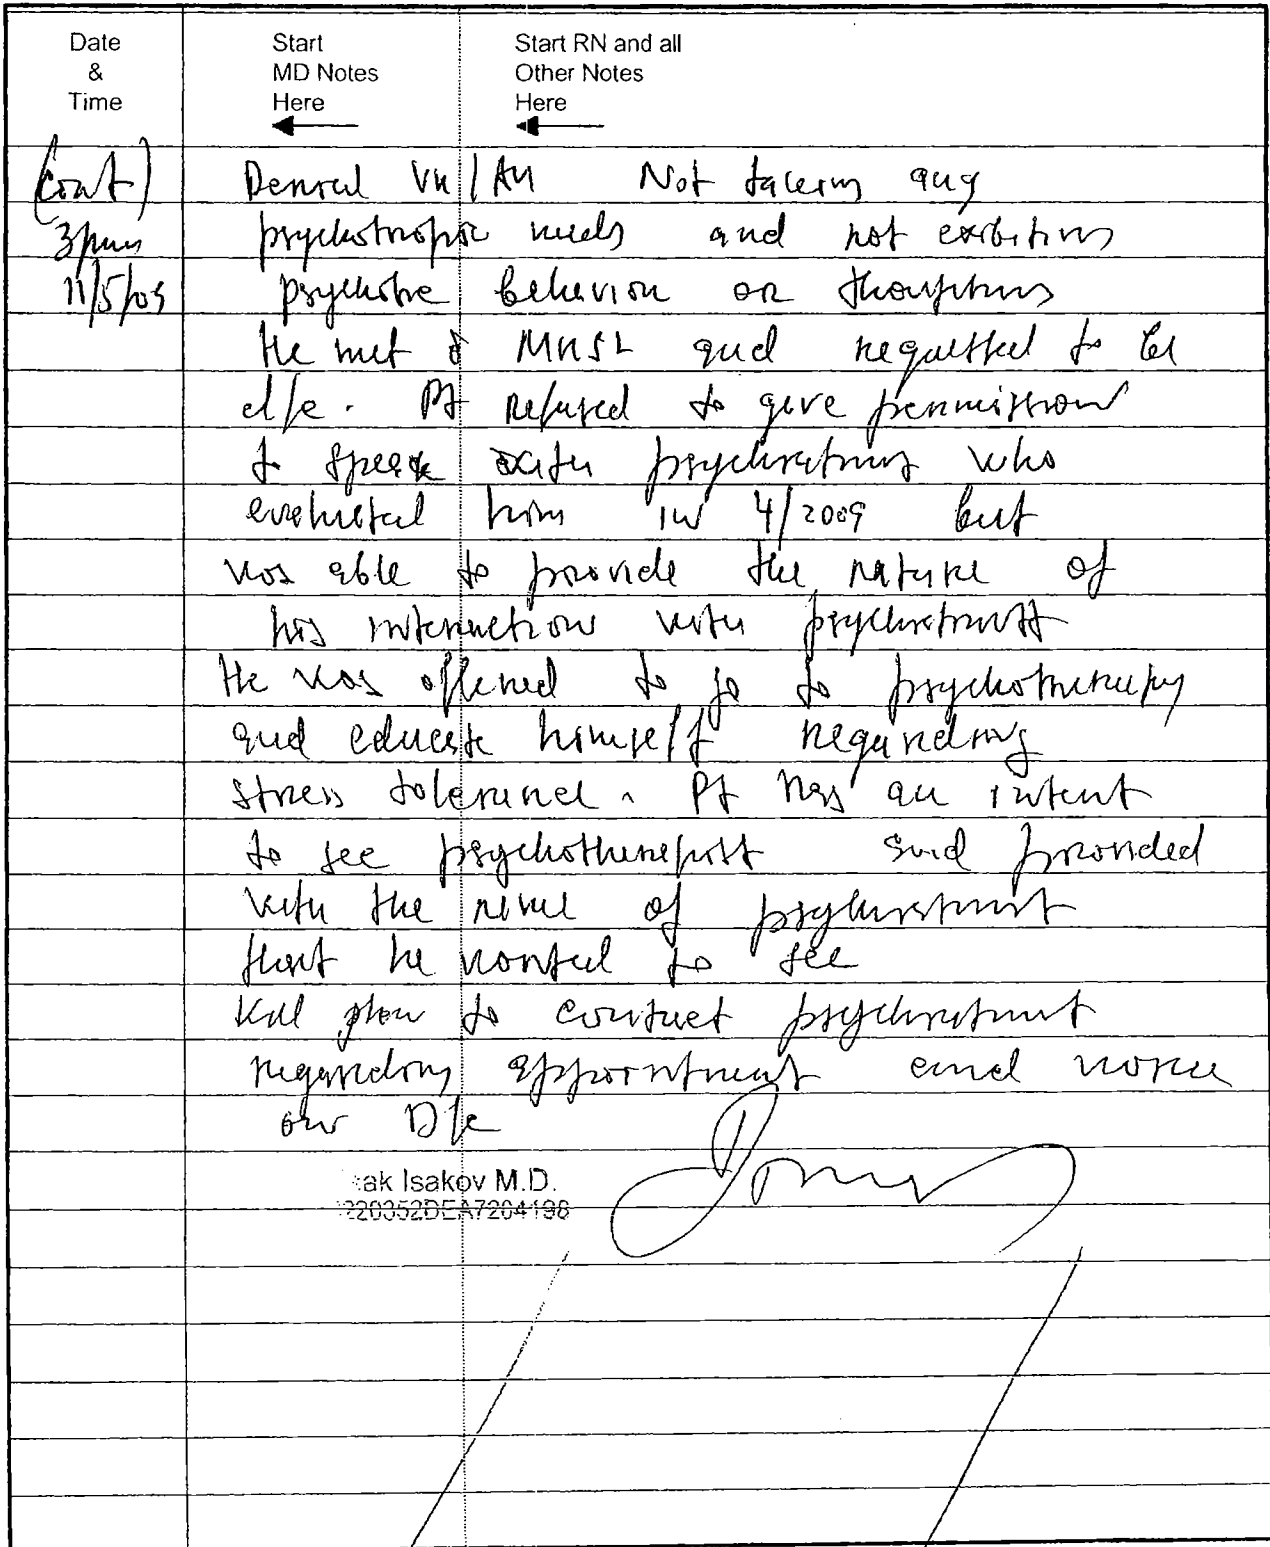 Date
&
Time
Start
MD Notes
Here
Start RN and all
Other Notes
Here
(cont)
3pm
11/5/09
Denied VH/AH Not taking any
psychotropic meds and not exibiting
psychotic behavior or thoughts
He met c̄ MHSL and requested to be
d/c. Pt refused to give permission
to speak with psychiatrist who
evaluated him in 4/2009 but
was able to provide the nature of
his interaction with psychiatrist
He was offered to go to psychotherapy
and educate himself regarding
stress tolerance. Pt has an intent
to see psychotherapist and provided
with the name of psychiatrist
that he wanted to see
Will plan to contact psychiatrist
regarding appointment and work
on D/c
ak Isakov M.D.
220352DEA7204198